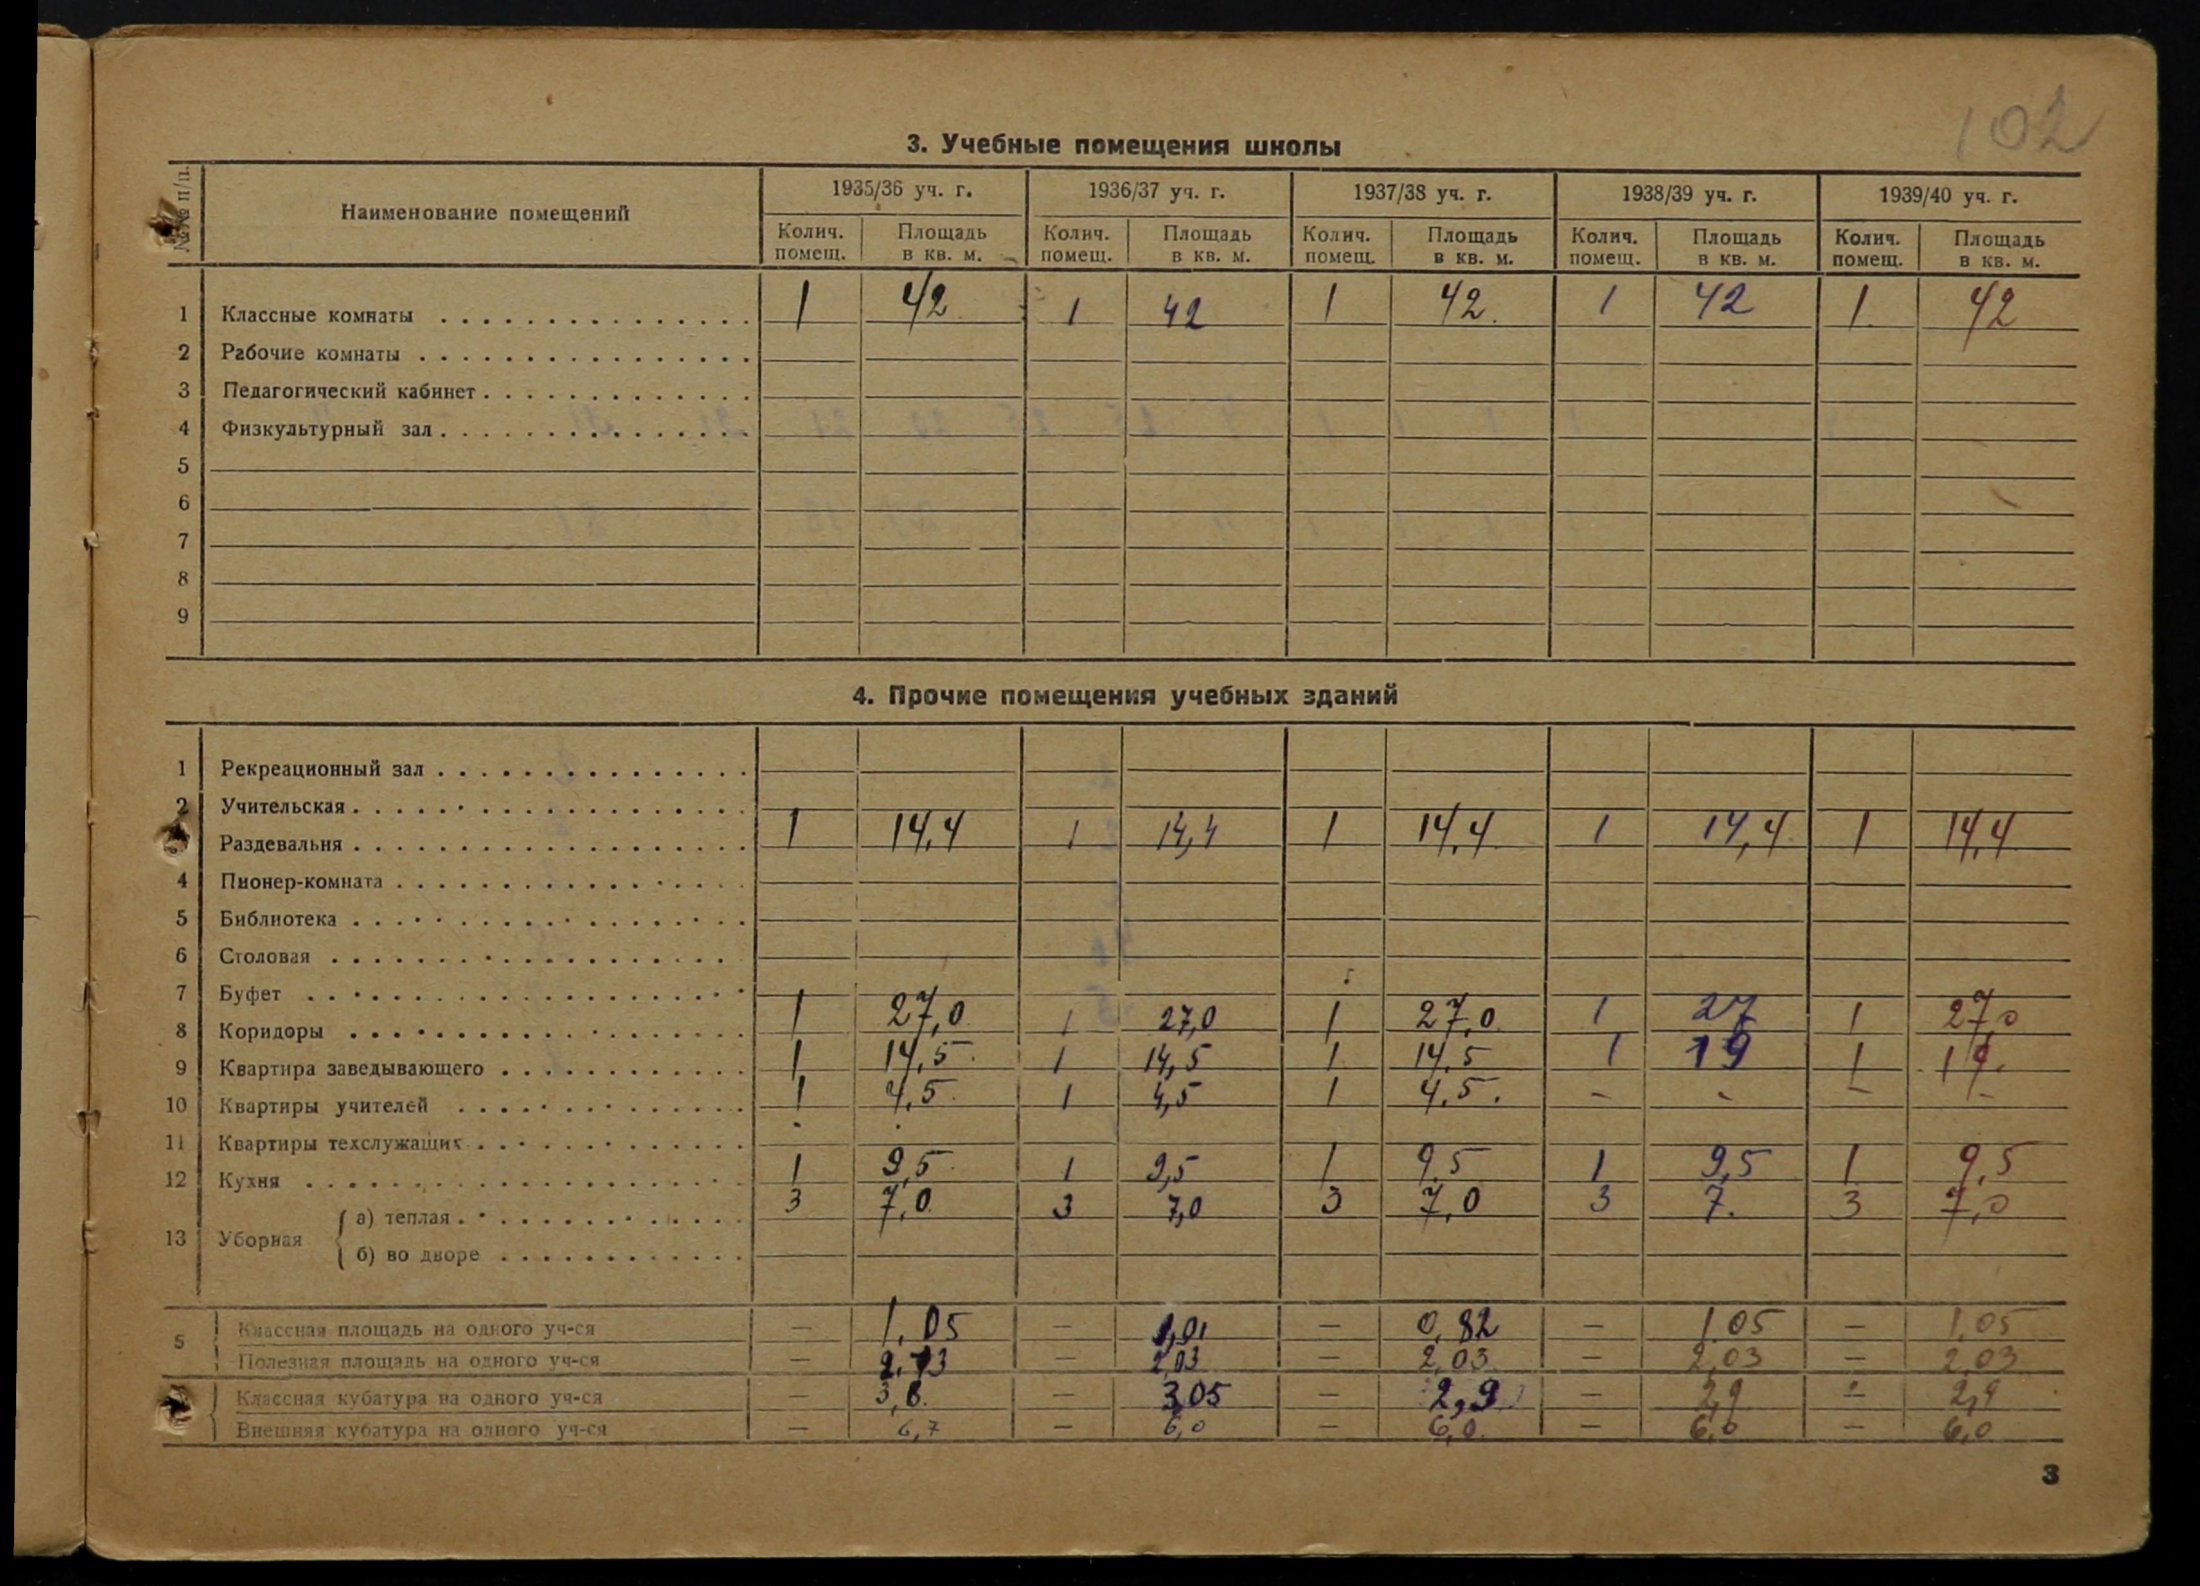 102
3. Учебные помещения школы
№№ п/п. Наименование помещений 1935/36 уч. г. 1936/37 уч. г. 1937/38 уч. г. 1938/39 уч. г. 1939/40 уч. г.
Колич. помещ. Площадь в кв. м. Колич. помещ. Площадь в кв. м. Колич. помещ. Площадь в кв. м. Колич. помещ. Площадь в кв. м. Колич. помещ. Площадь в кв. м.
1 Классные комнаты 1 42 1 42 1 42 1 42 1 42
2 Рабочие комнаты
3 Педагогический кабинет
4 Физкультурный зал
5
6
7
8
9
4. Прочие помещения учебных зданий
1 Рекреационный зал
2 Учительская
Раздевальня 1 14,4 1 14,4 1 14,4 1 14,4 1 14,4
4 Пионер-комната
5 Библиотека
6 Столовая
7 Буфет
8 Коридоры 1 27,0 1 27,0 1 27,0 1 27 1 27,0
9 Квартира заведывающего 1 14,5 1 14,5 1 14,5 1 19 1 19.
10 Квартиры учителей 1 4,5 1 4,5 1 4,5. - - - -
11 Квартиры техслужащих
12 Кухня 1 9,5 1 9,5 1 9,5 1 9,5 1 9,5
13 Уборная а) теплая 3 7,0 3 7,0 3 7,0 3 7. 3 7,0
б) во дворе
5 Классная площадь на одного уч-ся — 1,05 — 1,01 — 0,82 — 1,05 — 1,05
Полезная площадь на одного уч-ся — — 2,03 — 2,03 — 2,03 — 2,03
Классная кубатура на одного уч-ся — 3,8. — 3,05 — 2,9 — 2,9 — 2,9
Внешняя кубатура на одного уч-ся — 6,7 — 6,0 — 6,0 — 6,0 — 6,0
3